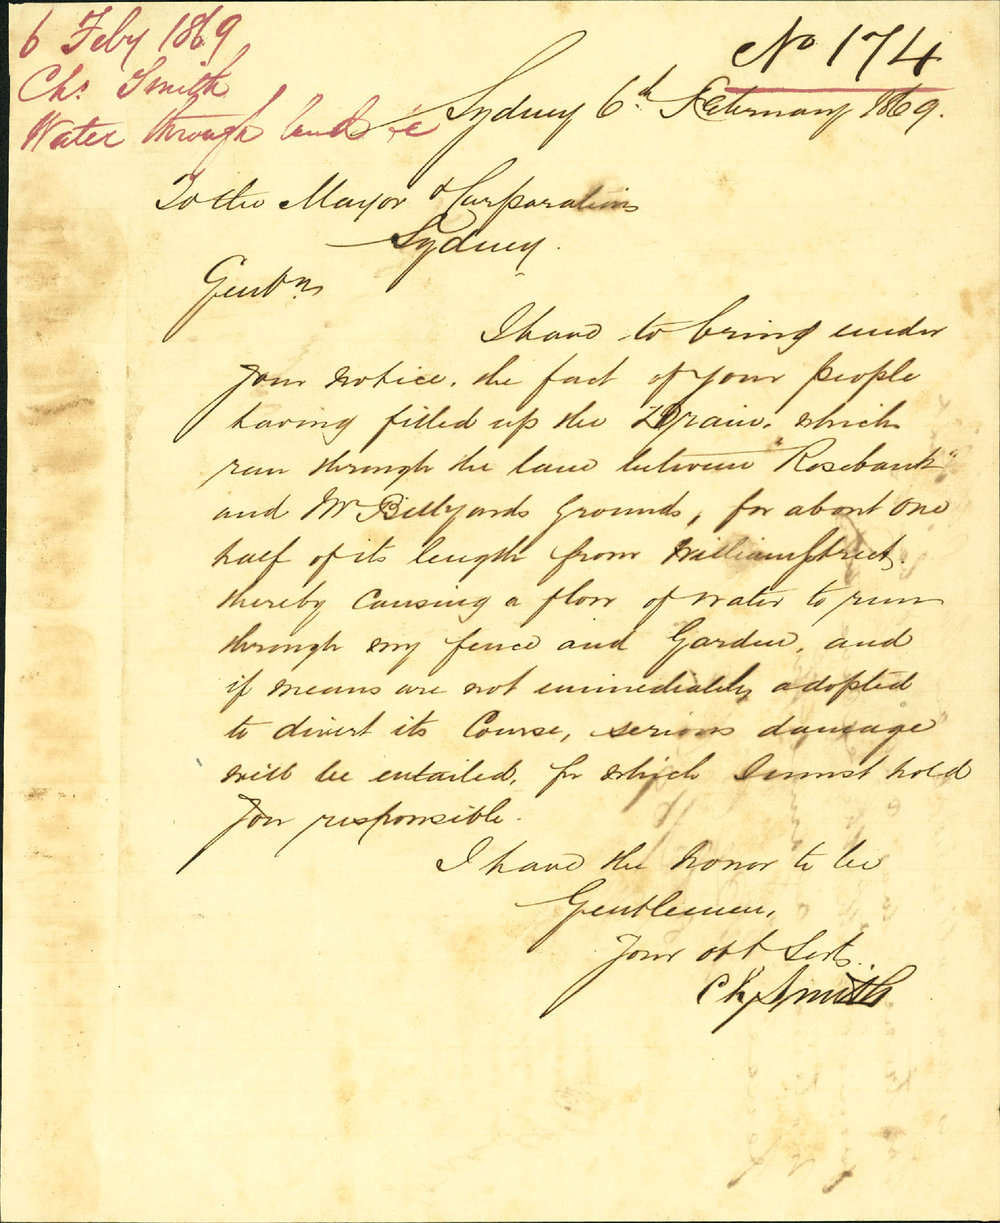 6 Feby 1869
Chs. Smith
Water through land &c
No 174
Sydney 6th February 1869.
To the Mayor & Corporation
Sydney.
Gentn
I have to bring under
your notice, the fact of your people
having filled up the Drain, which
run through the lane between "Rosebank"
and Mr Billyards Grounds, for about one
half of its length from William Street,
thereby causing a flow of water to run
through my fence and Garden, and
if means are not immediately adopted
to divert its Course, serious damage
will be entailed, for which I must hold
you responsible.
I have the honor to be
Gentlemen,
Your obt Servt.
Chs Smith